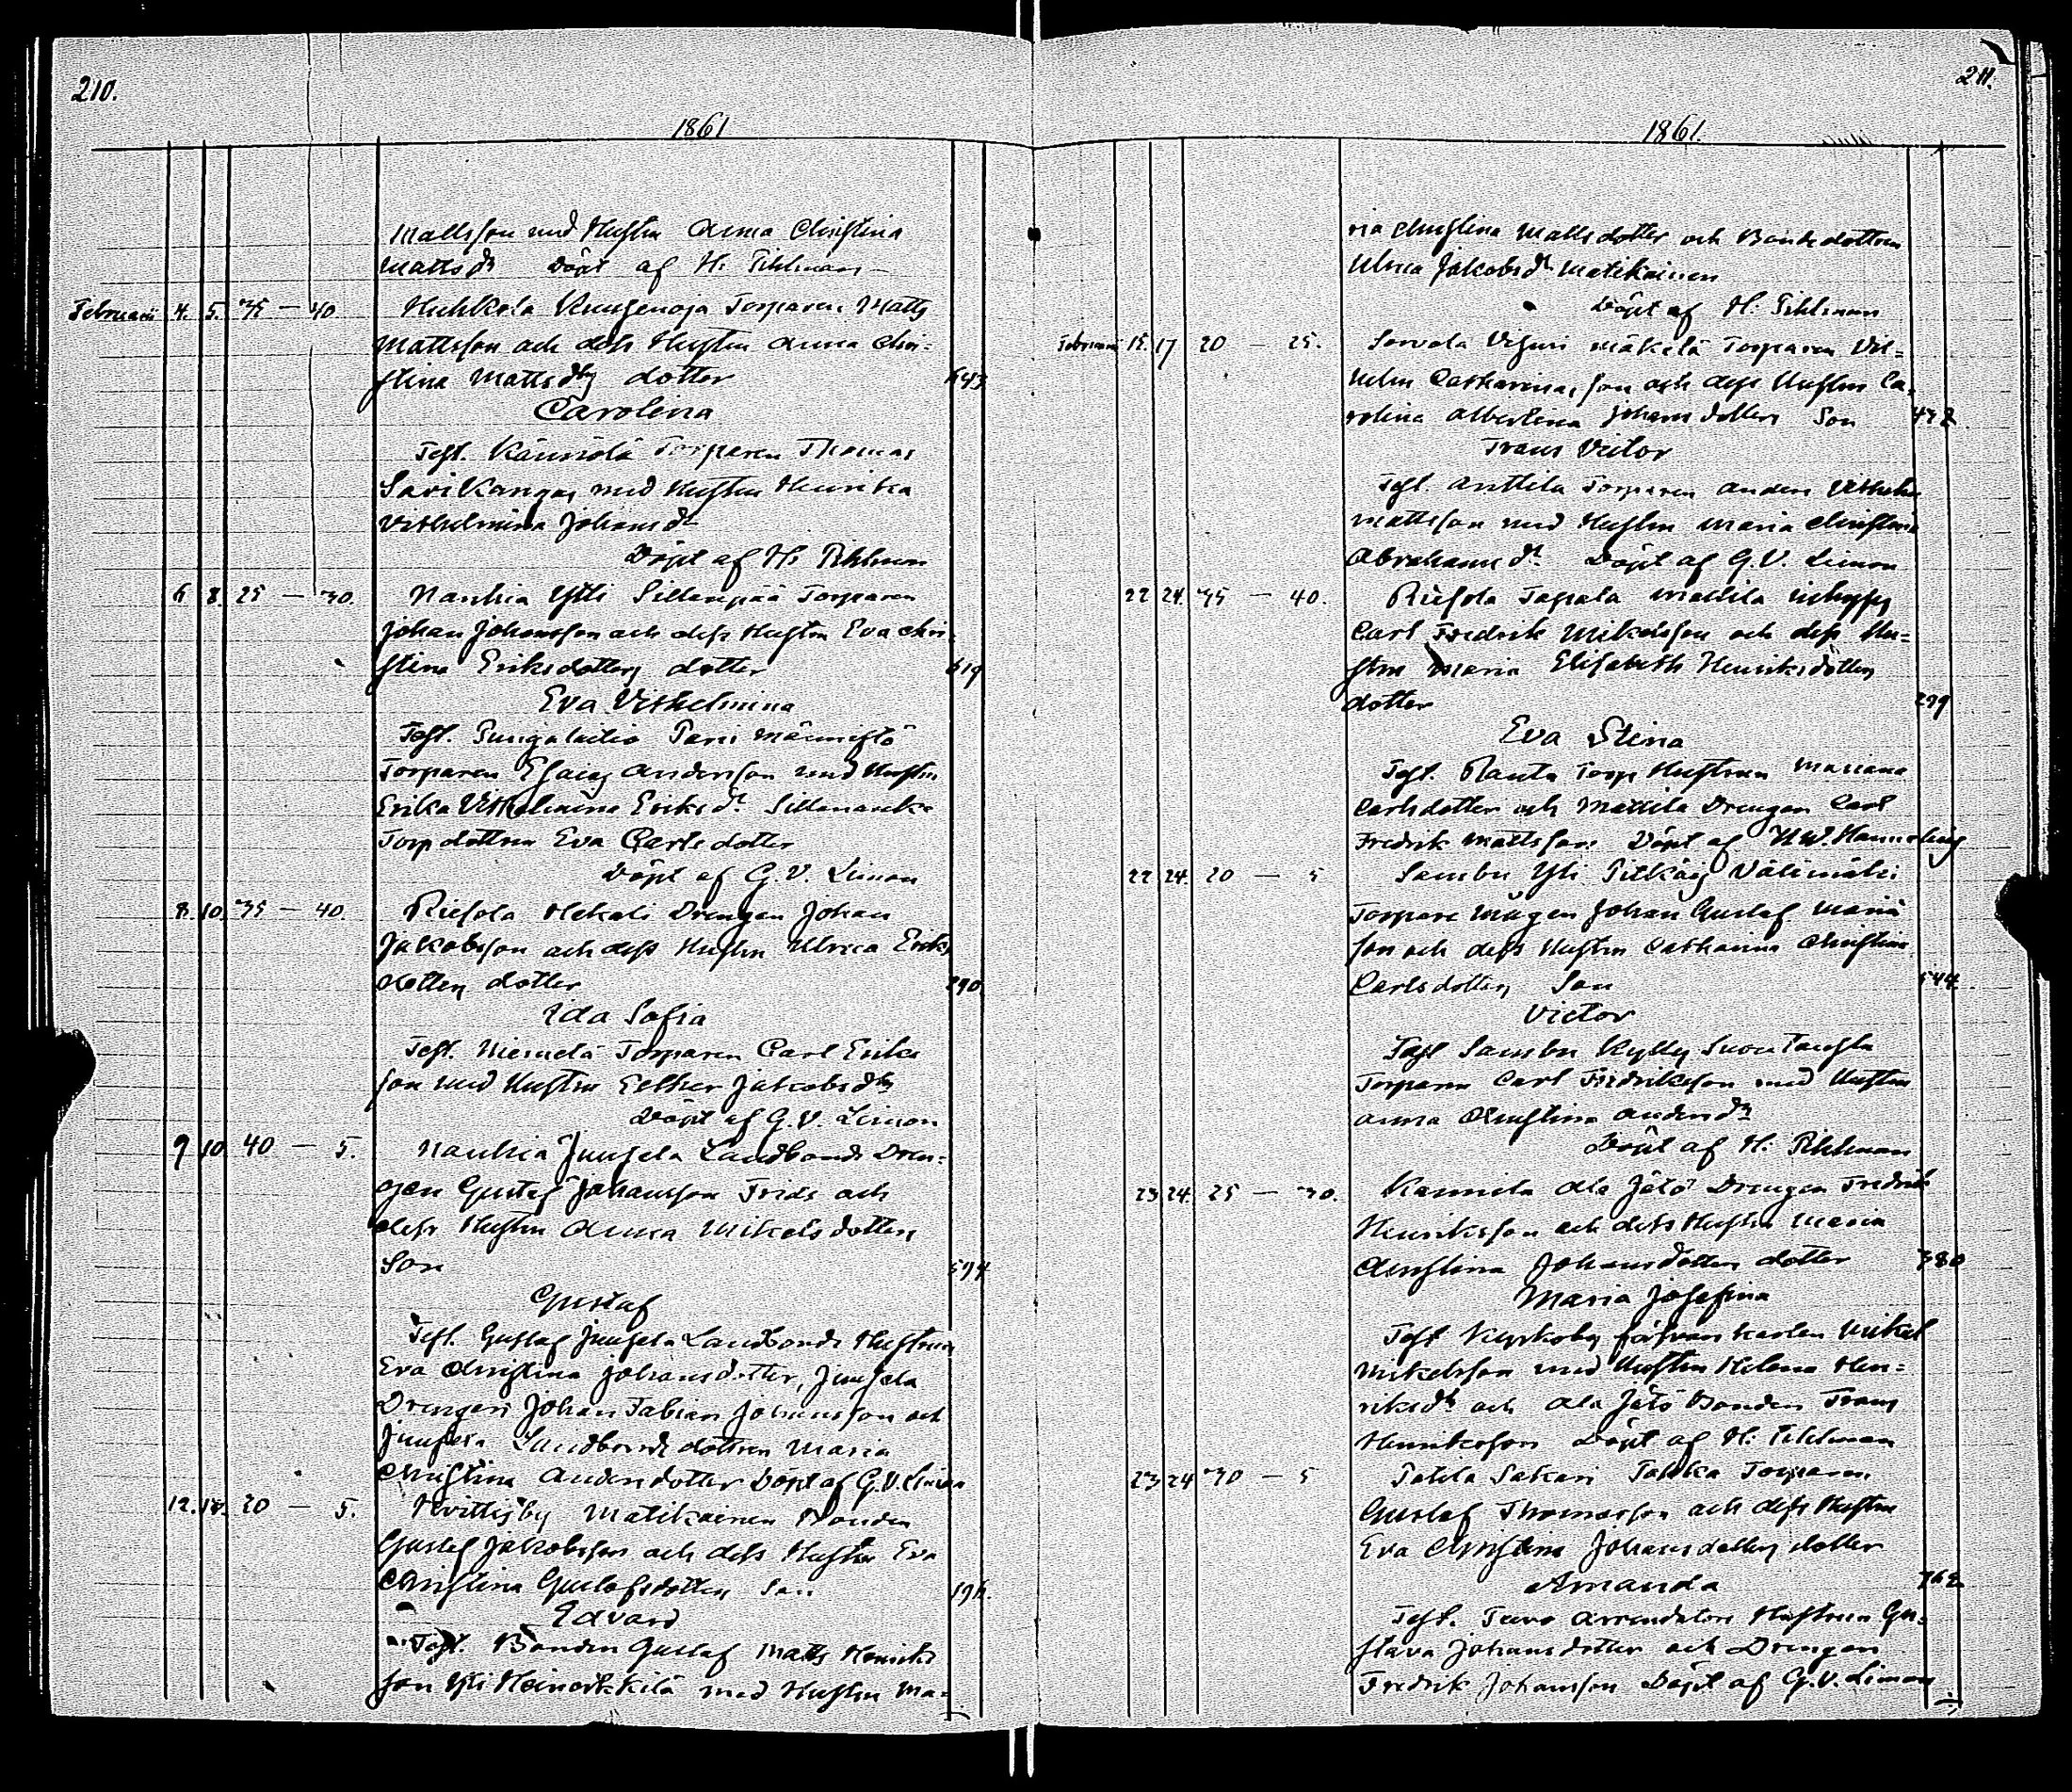 210.
1861
Mattsson med Hustru Anna Christina
Mattsdr Döpt af H: Pihlman
Februarii 4. 5. 35 — 40. Huhkola Knuusenoja Torparen Matts
Mattsson och dess Hustru Anna Chri-
stina Mattsdrs dotter 643
Carolina
Test. Kännölä Torparen Thomas
Sarikangas med Hustru Henrika
Vilhelmina Johansdr
Döpt af H: Pihlman
6 8. 25 — 30. Nanhia Yli Sillanpää Torparen
Johan Johansson och dess Hustru Eva Chri-
stina Eriksdotters dotter 619
Eva Vilhelmina
Test. Sungulaitio Pani Männistö
Torparen Esaias Andersson med Hustru
Erika Vilhelmina Eriksdr Sillanauke
Torpdottren Eva Carlsdotter
Döpt af G. V. Limon
8. 10. 35 — 40. Riesola Hekali Drengen Johan
Jakobsson och dess Hustru Ulrica Eriks
dotters dotter 290
Ida Sofia
Test. Niemelä Torparen Carl Eriks
son med Hustru Esther Jakobsdr
Döpt af G. V. Limon
9 10 40 — 5. Nanhia Juusela Landbonde Dren-
gen Gustaf Johansson Frids och
dess Hustru Anna Mikelsdotters
Son 594
Gustaf
Test. Gustaf Juusela Landbonde Hustrun
Eva Christina Johansdotter, Juusela
Drengen Johan Fabian Johansson och
Juusela Landbonde dottren Maria
Christina Andersdotter Döpt af G. V. Limon
12. 20 — 5. Kvittisby Matikainen Bonden
Gustaf Jakobsson och dess Hustru Eva
Christina Gustafsdotters Son 196.
Edvard
Test. Bonden Gustaf Matts Henriks
son Yli Heinokkilä med Hustru Ma-
211.
1861.
ria Christina Mattsdotter och Bondedottren
Ulrica Jakobsdr Matikainen
Döpt af H. Pihlman
Februarii 15. 17 20 — 25. Sorvola Viguri Mäkelä Torparen Vil-
helm Catharinasson och dess Hustru Ca-
rolina Albertina Johansdotters Son 432
Frans Victor
Test. Anttila Torparen Anders Vilhelm
Mattsson med Hustru Maria Christina
Abrahamsdr Döpt af G. V. Limon
22 24. 35 — 40. Riesola Tapala Mattila inhyses
Carl Fredrik Mikelsson och dess Hu-
stru Maria Elisabeth Henriksdotters
dotter 299
Eva Stina
Test. Rauta Torp Hustrun Mariana
Carlsdotter och Mattila Drengen Carl
Fredrik Mattsson Döpt af
22 24. 20 — 5 Sambu Yli Pitkäis Välimäki
Torpare Mågen Johan Gustaf Maria
son och dess Hustru Catharina Christina
Carlsdotters Son 544.
Victor
Test Sambu Kylly Suontausta
Torparen Carl Fredriksson med Hustru
Anna Christina Andersdr
Döpt af H: Pihlman
23 24. 25 — 30. Karmela Ala Jätö Drengen Fredrik
Henriksson och dess Hustru Maria
Christina Johansdotters dotter 380
Maria Josefina
Test Kyrkoby försvarskarlen Mikel
Mikelsson med Hustru Helena Hen-
riksdr och Ala Jätö Bonden Frans
Henriksson Döpt af H: Pihlman
23 24 30 — 5 Potila Sakari Torparen
Gustaf Thomasson och dess Hustru
Eva Christina Johansdotters dotter
Amanda 762
Test. Arrendators Hustrun Gu-
stava Johansdotter och Drengen
Fredrik Johansson Döpt af G. V. Limon